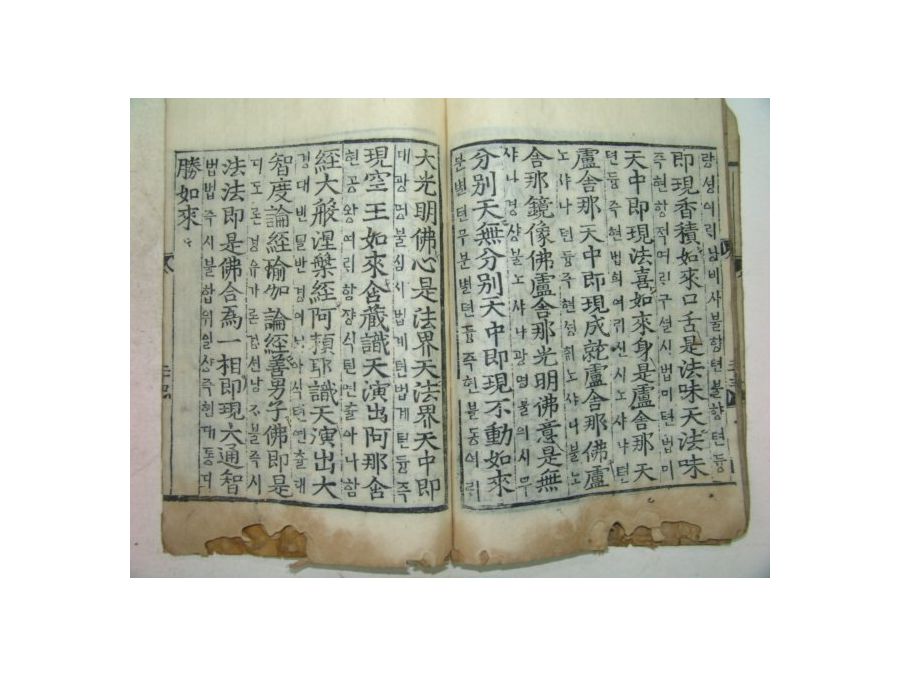 即現香積如來口舌是法味天法味
즉현향적여ᄅᆡ구셜시법미텬법미
天中即現法喜如來身是盧舍那天
텬듕즉현법희여ᄅᆡ신시노사나텬
盧舍那天中即現成就盧舍那佛盧
노샤나텬듕즉현셩취노샤나불노
舍那鏡像佛盧舍那光明佛意是無
샤나경샹불노샤나광명불의시무
分別天無分別天中即現不動如來
분별텬무분별텬듕즉현불동여ᄅᆡ
大光明佛心是法界天法界天中即
대광명불심시법계텬법계텬듕즉
現空王如來含藏識天演出阿那含
현공왕여ᄅᆡ함쟝식텬연츌아나함
經大般涅槃經阿頼耶識天演出大
경대반 경아 식텬연츌대
智度論經瑜伽論經善男子佛即是
지도론경유가론경션남ᄌᆞ불즉시
法法即是佛合為一相即現大通智
법법즉시불합위일샹즉현대통지
勝如來